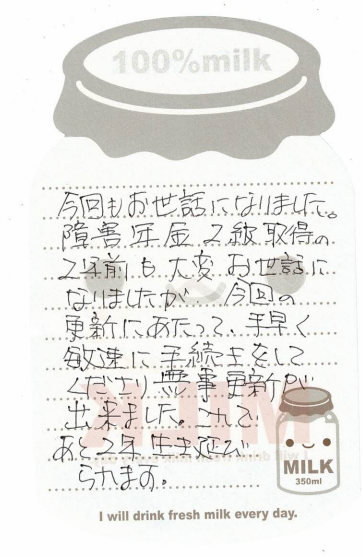 100%milk
今回もお世話になりました。
障害年金2級取得の
2年前も大変お世話に
なりましたが 今回の
更新にあたって、手早く
敏速に手続きをして
くださり無事更新が
出来ました。これで
あと2年生き延び
られます。
MILK
350ml
I will drink fresh milk every day.